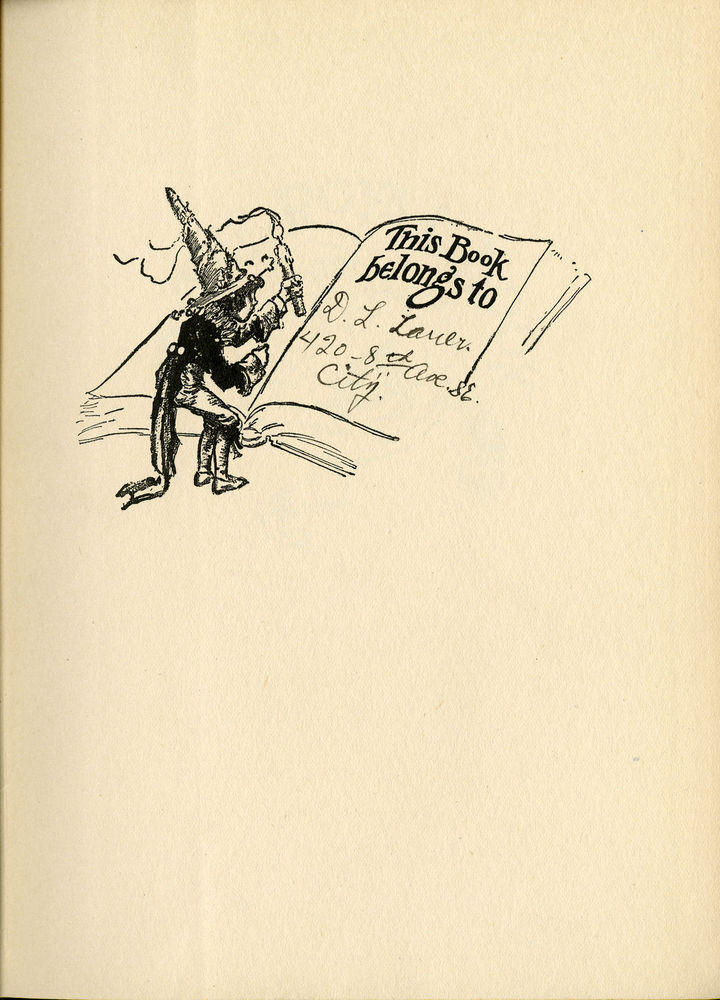 This Book
belongs to
D. L.
420 - 8th Ave. SE.
City.